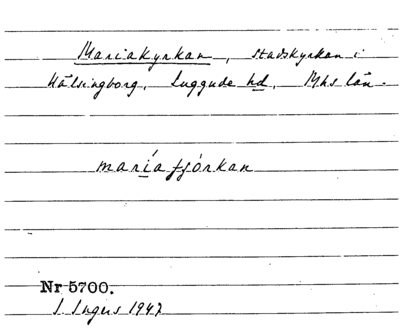 Mariakyrkan, stadskyrkan i
Hälsingborg, Luggude hd, Mhs län.
maríafjórkan
Nr 5700.
S. Ingers 1947